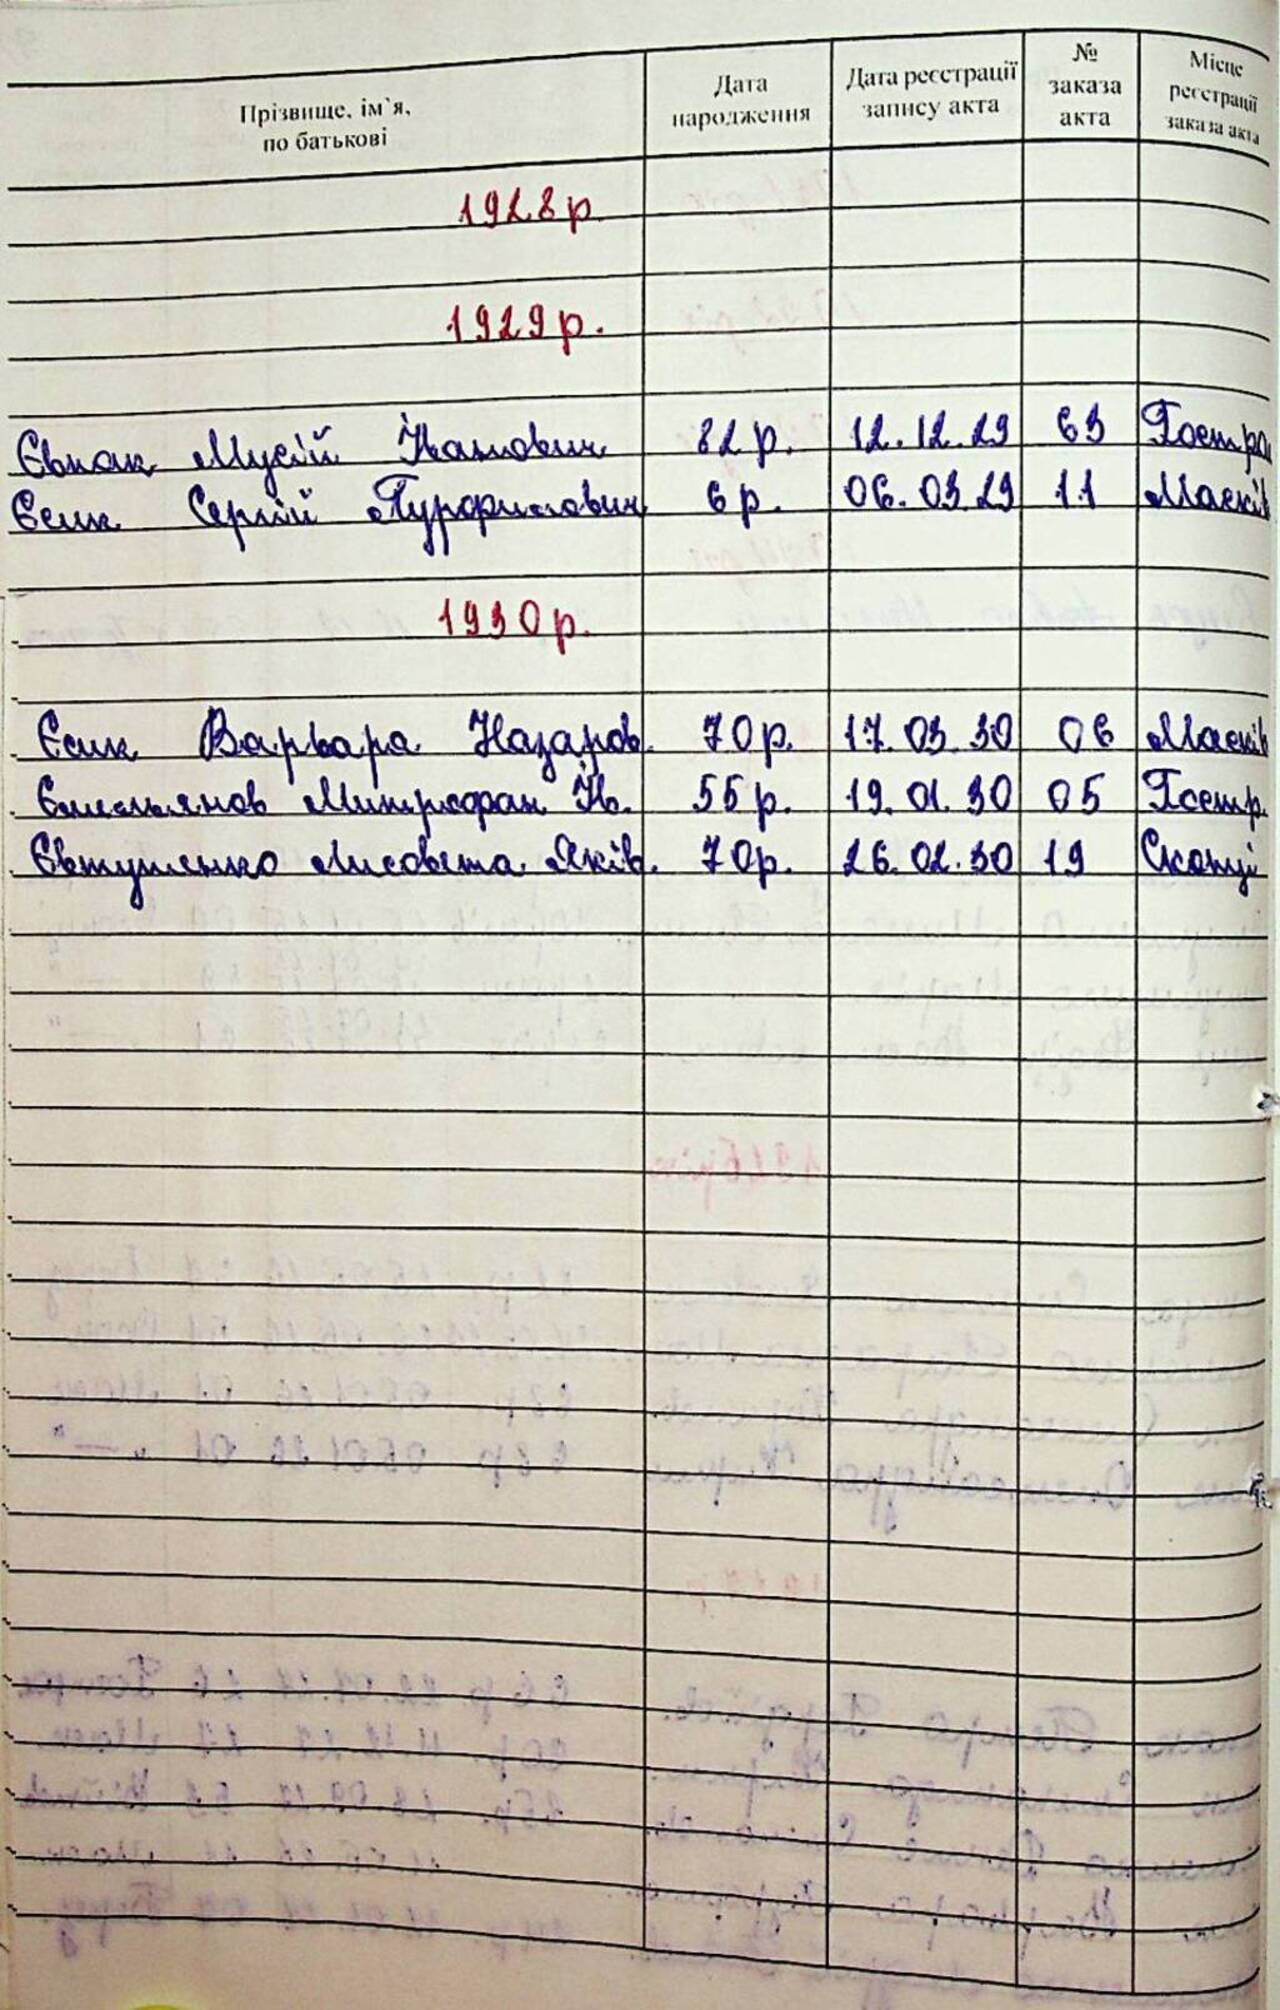 Прізвище, ім`я, по батькові
Дата народження
Дата реєстрації запису акта
№ заказа акта
Місце реєстрації заказа акта
1928 р.
1929 р.
Євпак Мусій Іванович 82 р. 12.12.29 63 Гостро
Єсик Сергій Турфилович 6 р. 06.03.29 11 Масків
1930 р.
Єсик Варвара Назаров. 70 р. 17.03.30 06 Масків
Ємельянов Митрофан Ів. 55 р. 19.01.30 05 Гостр.
Євтушенко Лисовета Яків. 70 р. 26.02.30 19 Скопці